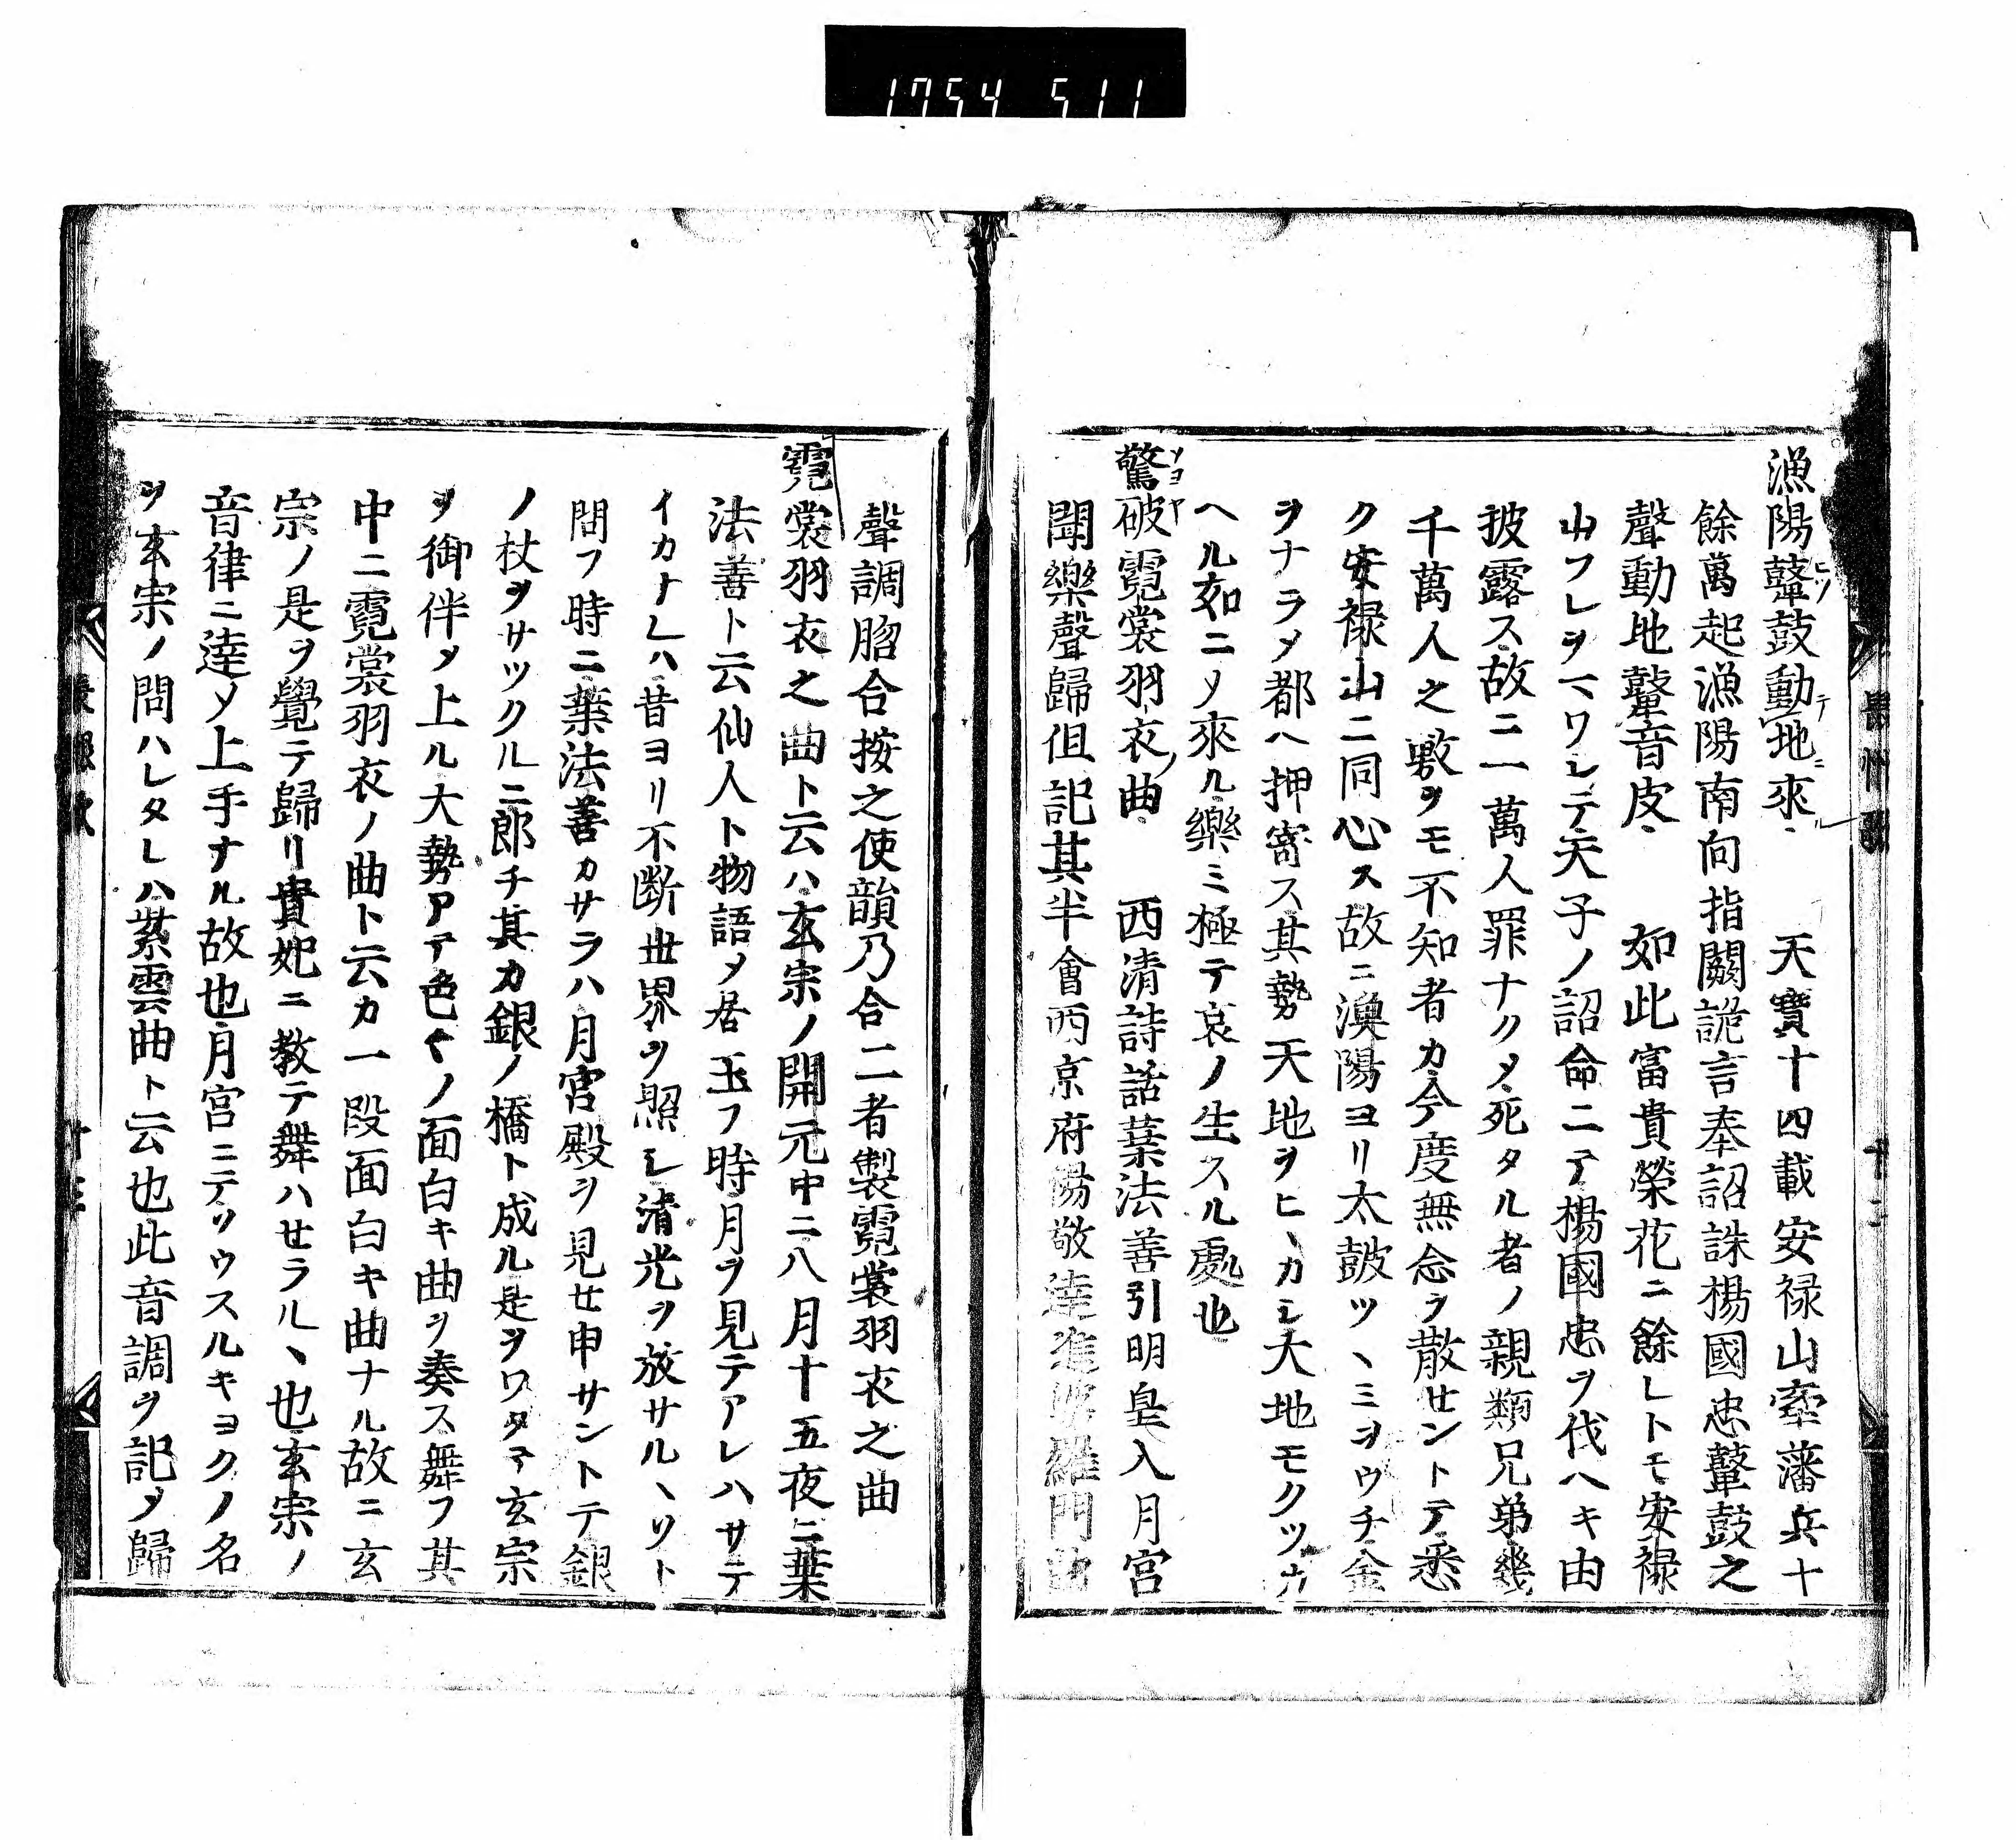 1754 511
漁陽鼙鼓動地來、 天寶十四載安禄山牽藩兵十
餘萬起漁陽南向指闕詭言奉詔誅楊國忠鼙鼓之
聲動地鼙音皮、 如此富貴榮花ニ餘レトモ安禄
山フレヲマワレテ天子ノ詔命ニテ楊國忠ヲ伐ヘキ由
披露ス故ニ一萬人罪ナクメ死タル者ノ親類兄弟幾
千萬人之數ヲモ不知者カ今度無念ヲ散せントテ悉
ク安禄山ニ同心ス故ニ漁陽ヨリ太皷ツヽミヲウチ金
ヲナラメ都ヘ押寄ス其勢天地ヲヒヽカシ大地モクツカ
ヘル如ニノ來ル樂ミ極テ哀ノ生スル處也
驚破霓裳羽衣曲 西清詩話葉法善引明皇入月宮
聞樂聲歸但記其半會西京府楊敬逹進婆羅門曲
聲調脗合按之使韻乃合二者製霓裳羽衣之曲
霓裳羽衣之曲ト云ハ玄宗ノ開元中ニ八月十五夜ニ葉
法善ト云仙人ト物語メ居玉フ時月ヲ見テアレハサテ
イカナレハ昔ヨリ不断世界ヲ照シ清光ヲ放サルヽソト
問フ時ニ葉法善カサラハ月宮殿ヲ見せ申サントテ銀
ノ杖ヲサツクルニ郎チ其カ銀ノ橋ト成ル是ヲワタテ玄宗
ヲ御伴メ上ル大勢アテ色くノ面白キ曲ヲ奏ス舞フ其
中ニ霓裳羽衣ノ曲ト云カ一段面白キ曲ナル故ニ玄
宗ノ是ヲ覺テ歸リ貴妃ニ教テ舞ハせラルヽ也玄宗ノ
音律ニ逹メ上手ナル故也月宮ニテソウスルキヨクノ名
ヲ玄宗ノ問ハレタレハ紫雲曲ト云也此音調ヲ記メ歸